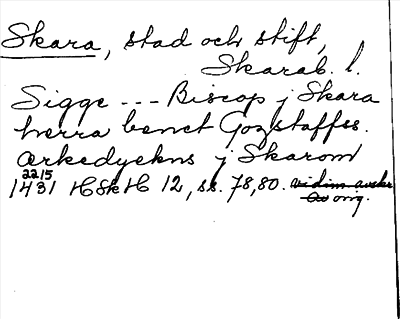 Skara, stad och stift,
Skarab. l.
Sigge --- Biscop j Skara
herra benct Gozstaffss.
ærkedyekns j Skarom
22/5
1431 HSkH 12, ss. 78, 80. vidim. avskr.
av orig.